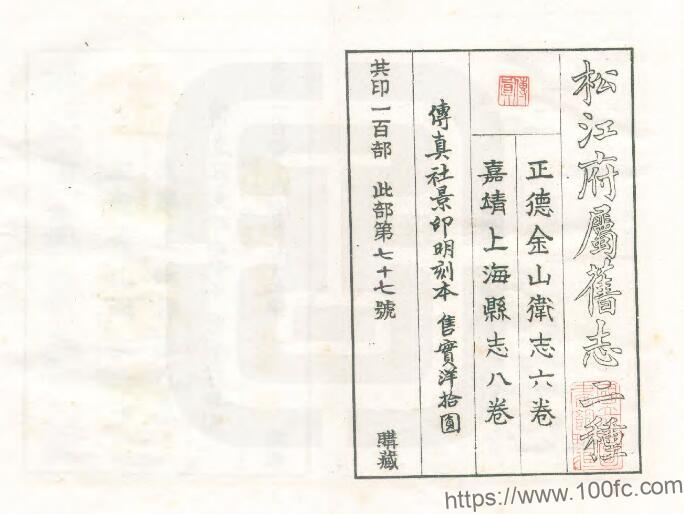 松江府屬舊志二種
正德金山衛志六卷
嘉靖上海縣志八卷
傳真
傳真社景印明刻本 售實洋拾圓
共印一百部 此部第七十七號 購藏
https://www.100fc.com